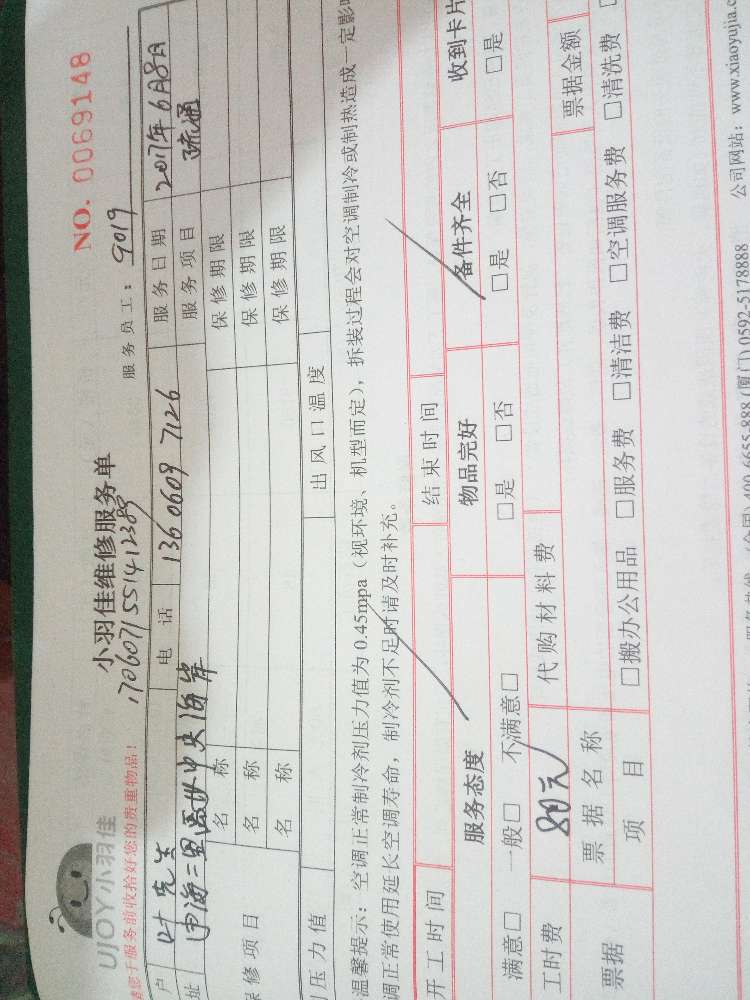 UJOY 小羽佳
小羽佳维修服务单
NO. 0069148
170607155141238
服务员工: 9019
请您于服务前收拾好您的贵重物品!
户 叶先生 电话 136 0609 7126 服务日期 2017年6月8日
址 中央海岸 服务项目 疏通
保修项目
名称 保修期限
名称 保修期限
名称 保修期限
压力值 出风口温度
温馨提示: 空调正常制冷剂压力值为 0.45mpa (视环境、机型而定), 拆装过程会对空调制冷或制热造成一定影
调正常使用延长空调寿命, 制冷剂不足时请及时补充。
开工时间 结束时间
服务态度 物品完好 备件齐全 收到卡片
满意□ 一般□ 不满意□ □是 □否 □是 □否 □是
工时费 80元 代购材料费
票据 票据名称 票据金额
项目 □搬办公用品 □服务费 □清洁费 □空调服务费 □清洗费
400-6655-888(厦门)0592-5178888 公司网站: www.xiaoyujia.c